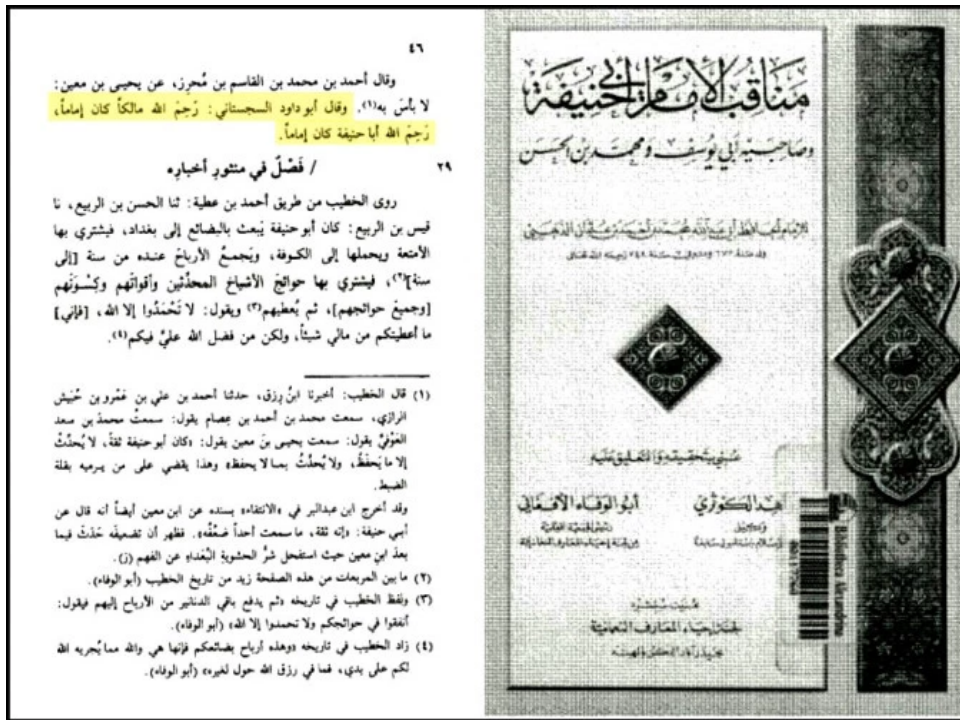 ٤٦
وقال أحمد بن محمد بن القاسم بن مُحرِز، عن يحيى بن معين:
لا بأسَ به(١). وقال أبو داود السجستاني: رَحِمَ الله مالكاً كان إماماً،
رَحِمَ الله أبا حنيفة كان إماماً.
٢٩ / فَصْلٌ في منثورِ أخبارِه
روى الخطيب من طريق أحمد بن عطية: ثنا الحسن بن الربيع، نا
قيس بن الربيع: كان أبو حنيفة يَبعث بالبضائع إلى بغداد، فيشتري بها
الأمتعة ويحملها إلى الكوفة، ويَجمعُ الأرباحَ عنده من سنة [إلى
سنة](٢)، فيشتري بها حوائجَ الأشياخ المحدِّثين وأقواتَهم وكِسْوَتَهم
[وجميعَ حوائجهم]، ثم يُعطيهم(٣) ويقول: لا تَحْمَدُوا إلا الله، [فإني]
ما أعطيتكم من مالي شيئاً، ولكن من فضل الله عليَّ فيكم(٤).
(١) قال الخطيب: أخبرنا ابنُ رزق، حدثنا أحمد بن علي بن عَمْرو بن حُبَيش
الرازي، سمعت محمد بن أحمد بن عِصام يقول: سمعتُ محمدَ بن سعد
العَوْفيَّ يقول: سمعت يحيى بنَ معين يقول: «كان أبو حنيفة ثقةً، لا يُحدِّثُ
إلا ما يَحفَظُ، ولا يُحدِّثُ بما لا يحفظ» وهذا يقضي على من يرميه بقلة
الضبط.
وقد أخرج ابن عبدالبر في «الانتقاء» بسنده عن ابن معين أيضاً أنه قال عن
أبي حنيفة: «إنه ثقة، ما سمعت أحداً ضعَّفَه». فظهر أن تضعيفَه حَدَثَ فيما
بعدَ ابن معين حيث استفحل شرُّ الحشوية البُعَداءِ عن الفهم (ز).
(٢) ما بين المربعات من هذه الصفحة زيد من تاريخ الخطيب (أبو الوفاء).
(٣) ولفظ الخطيب في تاريخه «ثم يدفع باقي الدنانير من الأرباح إليهم فيقول:
أنفقوا في حوائجكم ولا تحمدوا إلا الله» (أبو الوفاء).
(٤) زاد الخطيب في تاريخه «وهذه أرباح بضائعكم فإنها هي والله مما يُجريه الله
لكم على يدي، فما في رزق الله حول لغيره» (أبو الوفاء).
مناقب الإمام أبي حنيفة
وصاحبيه أبي يوسف ومحمد بن الحسن
للإمام الحافظ أبي عبد الله محمد بن أحمد بن عثمان الذهبي
عُني بتحقيقه والتعليق عليه
زاهد الكوثري أبو الوفاء الأفغاني
عنيت بنشره
لجنة إحياء المعارف النعمانية
بحيدر آباد الدكن بالهند
Bibliotheca Alexandrina